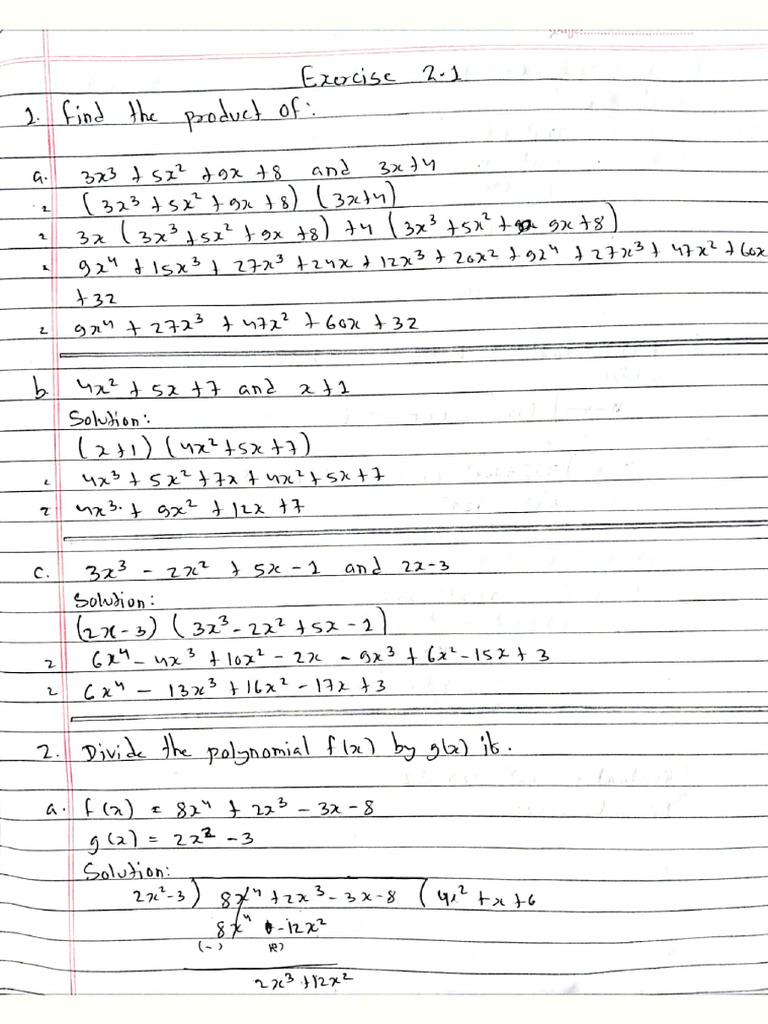 Exercise 2.1
1. find the product of:
a. 3x³ + 5x² + 9x + 8 and 3x+4
= (3x³ + 5x² + 9x + 8) (3x+4)
= 3x (3x³ + 5x² + 9x + 8) + 4 (3x³ + 5x² + 9x + 8)
= 9x⁴ + 15x³ + 27x³ + 24x + 12x³ + 20x² + 9x⁴ + 27x³ + 47x² + 60x
+32
= 9x⁴ + 27x³ + 47x² + 60x + 32
b. 4x² + 5x + 7 and x + 1
Solution:
(x+1) (4x² + 5x + 7)
= 4x³ + 5x² + 7x + 4x² + 5x + 7
= 4x³ + 9x² + 12x + 7
c. 3x³ - 2x² + 5x - 1 and 2x-3
Solution:
(2x-3) (3x³ - 2x² + 5x - 1)
= 6x⁴ - 4x³ + 10x² - 2x - 9x³ + 6x² - 15x + 3
= 6x⁴ - 13x³ + 16x² - 17x + 3
2. Divide the polynomial f(x) by g(x) if.
a. f(x) = 8x⁴ + 2x³ - 3x - 8
g(x) = 2x² - 3
Solution:
2x²-3) 8x⁴ + 2x³ - 3x - 8 (4x² + x + 6
8x⁴ -12x²
(-) (+)
2x³ + 12x²